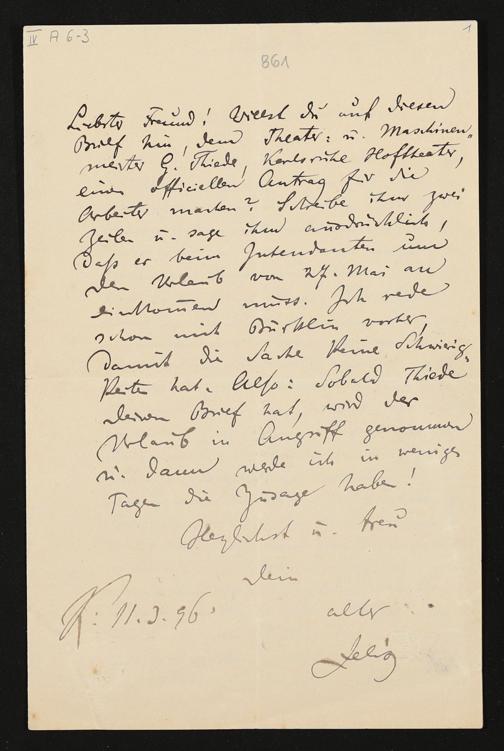 IV A 6-3
1
861
Liebster Freund! Willst du auf diesen
Brief hin, dem Theater= u. Maschinen=
meister G. Thiede, Karlsruhe Hoftheater,
einen officiellen Antrag für die
Arbeiter machen? Schreibe ihm zwei
Zeilen u. sage ihm ausdrücklich,
Daß er beim Intendanten um
den Urlaub von 27. Mai an
einkommen muss. Ich rede
schon mit Bürklin vorher,
damit die Sache keine Schwierig=
keiten hat. Also: Sobald Thiede
deinen Brief hat, wird der
Urlaub in Angriff genommen
u. dann werde ich in wenigen
Tagen die Zusage haben!
Herzlichst u. treu
dein
K: 11.3.96.
alter
Felix